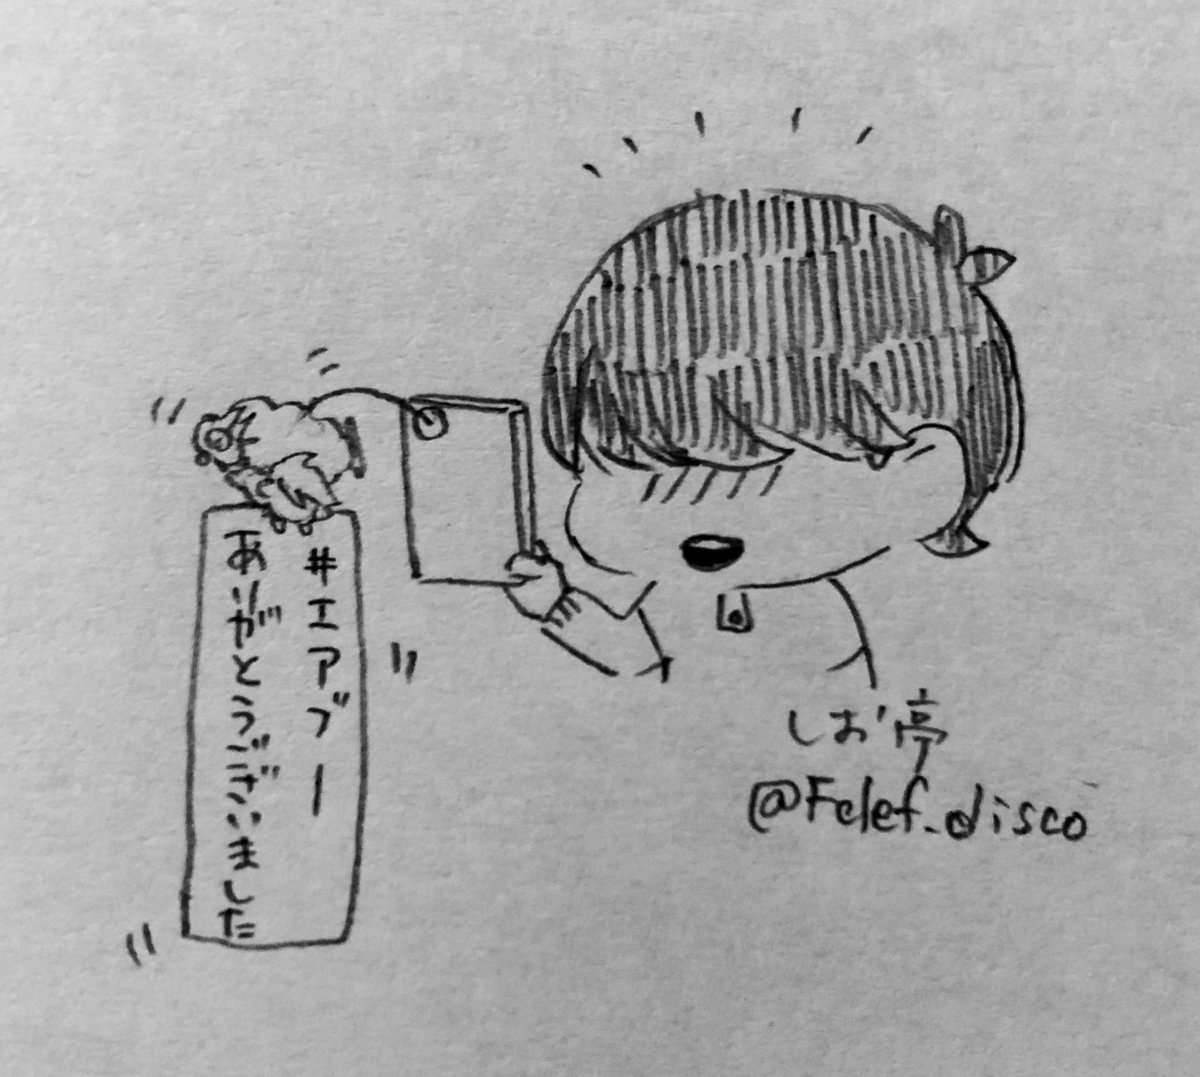 #エアブー
ありがとうございました
しお亭
@Fclef_disco